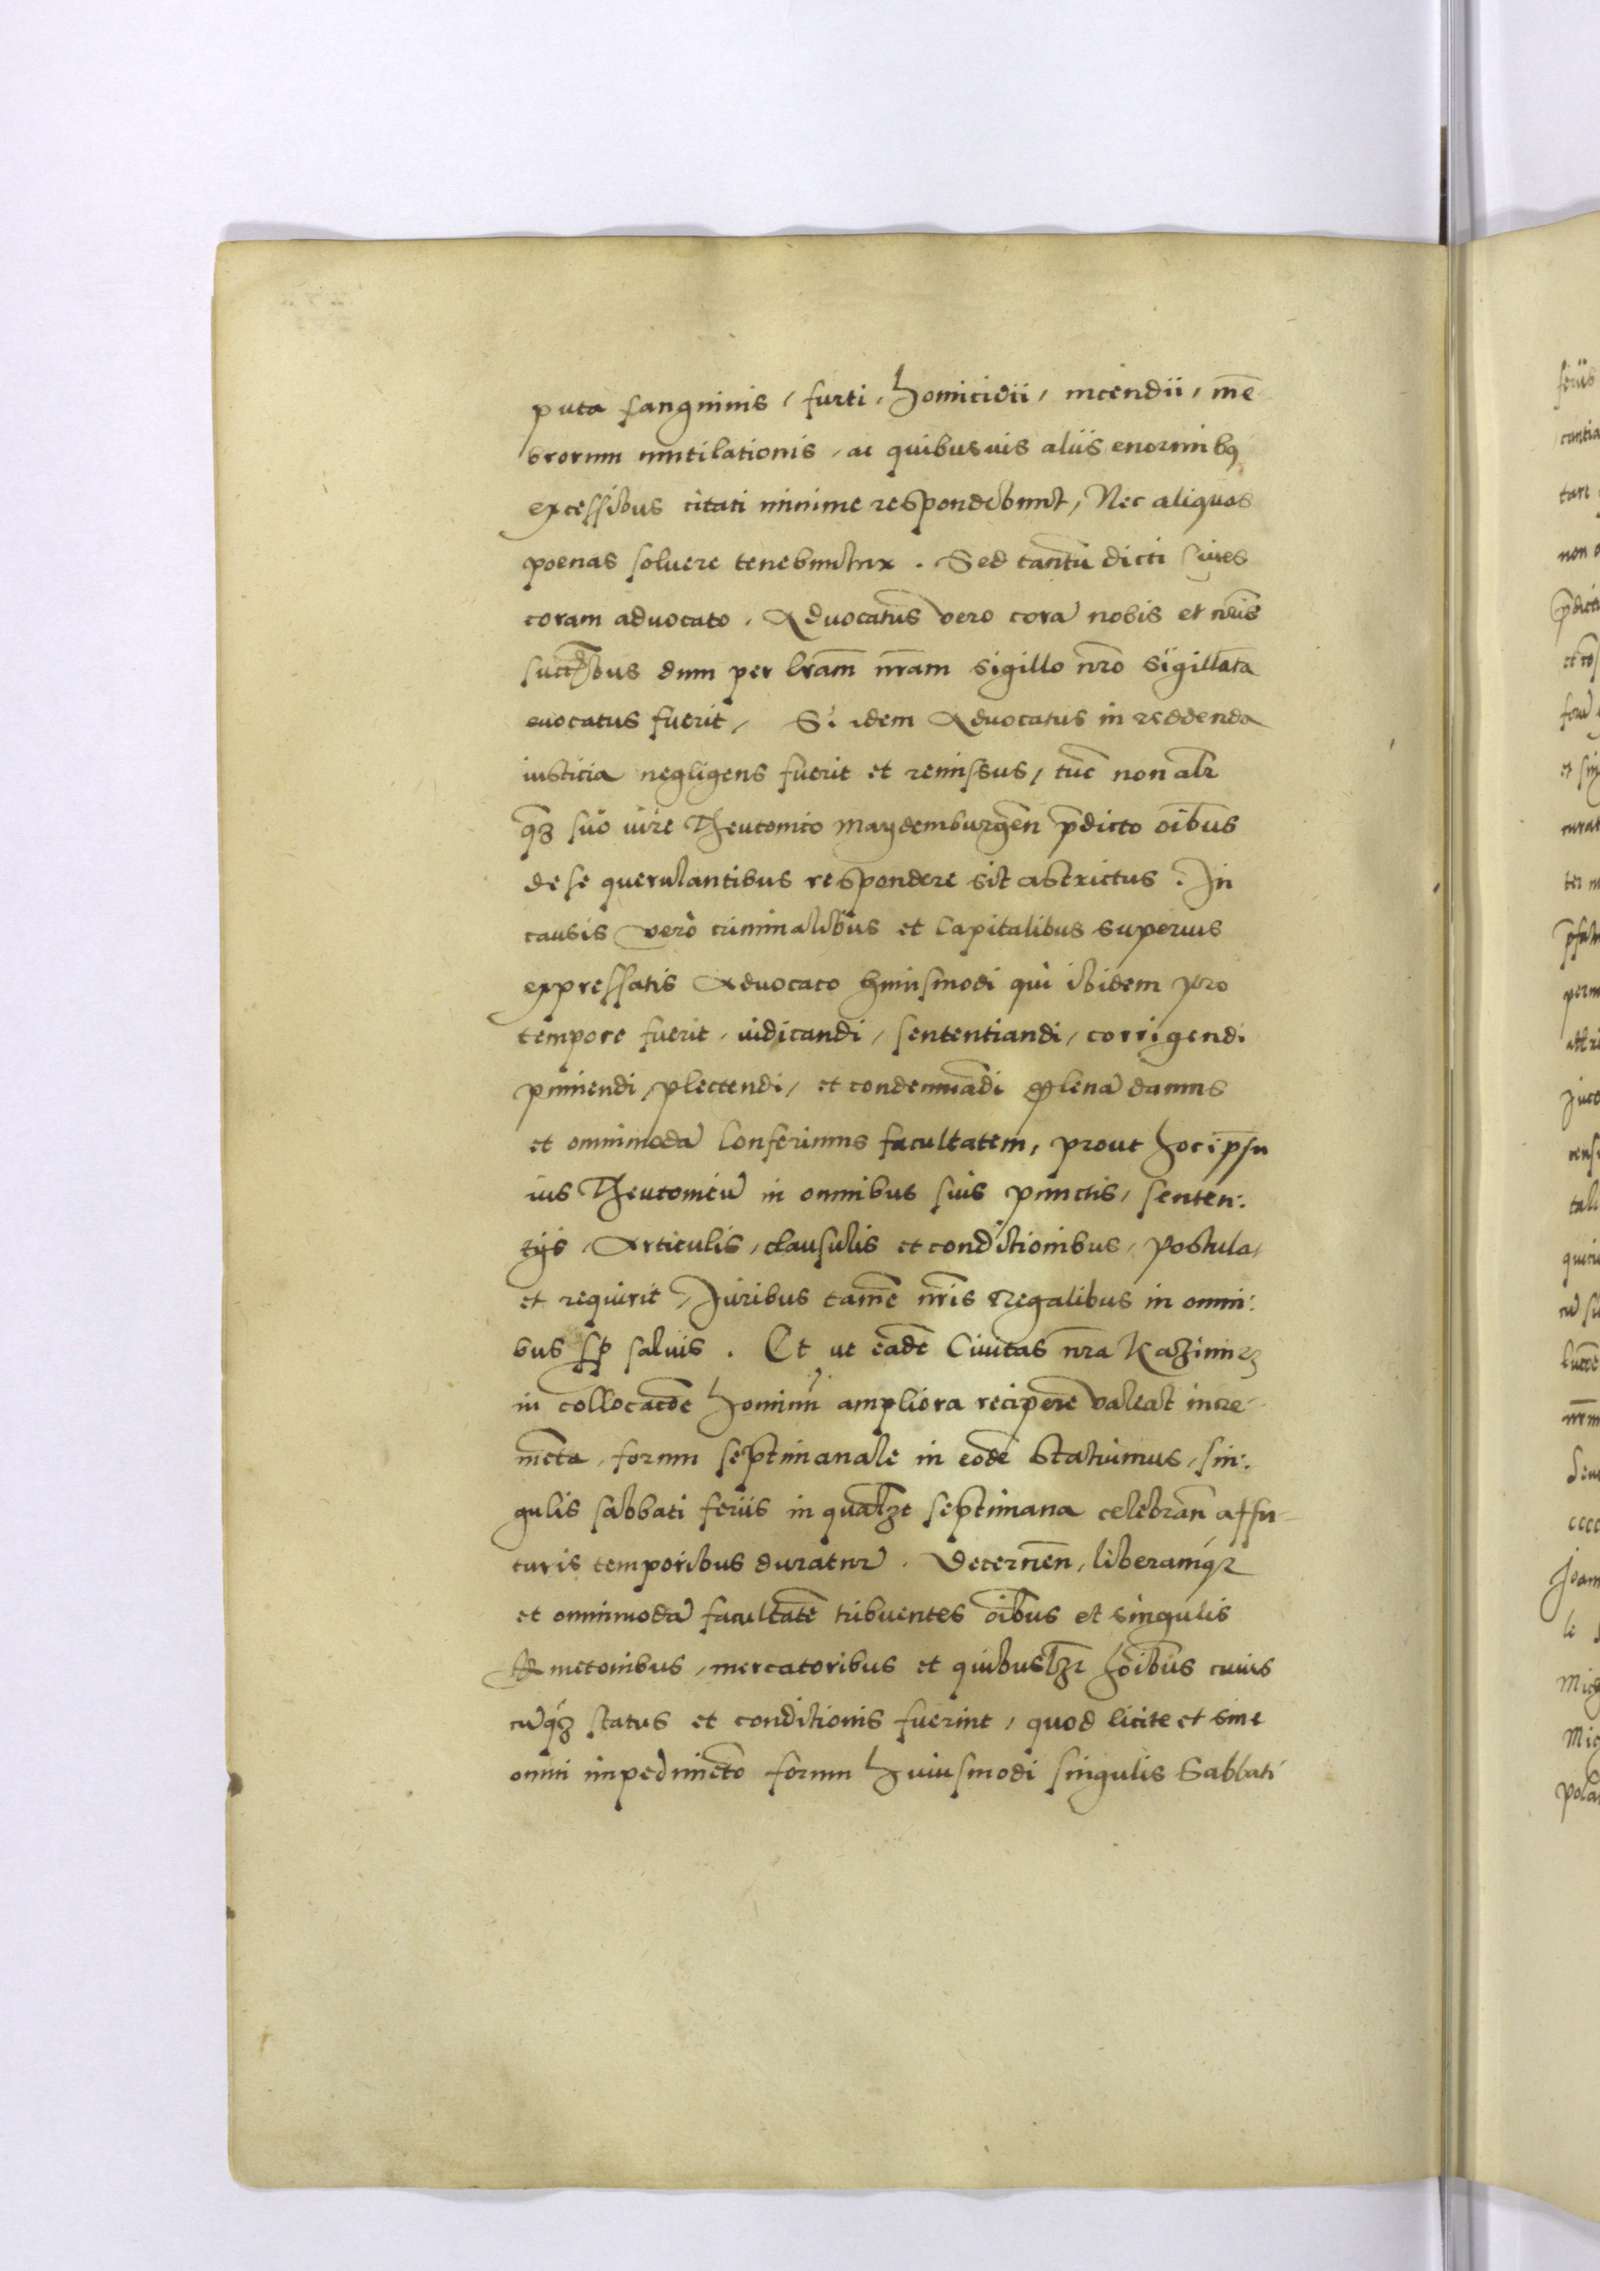 puta sanguinis, furti, Homicidii, incendii, mē
brorum mutilationis, ac quibusuis aliis enormibq
excessibus citati minime respondebunt, Nec aliquas
poenas soluere tenebuntur. Sed tantū dicti Ciues
coram aduocato, Aduocatus vero corā nobis et nr̄is
succ̄ribus dum per lr̄am nr̄am sigillo nr̄o sigillata
euocatus fuerit, Si idem Aduocatus in reddenda
iusticia negligens fuerit et remissus, tūc non alr̄
q̄ꝫ suo iure Theutonico Maydemburgēn p̄dicto oībus
de se querulantibus respondere sit astrictus. In
causis vero criminalibus et Capitalibus superius
expressatis Aduocato huiusmodi qui ibidem pro
tempore fuerit, iudicandi, sententiandi, corrigendi
puniendi, plectendi, et condemnādi plenā damus
et omnimodā Conferimus facultatem, prout hoc ipsū
ius Theutonicū in omnibus suis punctis, senten:
tijs, Articulis, clausulis et conditionibus, Postula,
et requirit, Juribus tamē nr̄is Regalibus in omni:
bus sp̄ saluis. Et ut eadē Ciuitas nr̄a Kazimirz
in collocacōe hominū ampliora recipere valeat incre-
mēta, forum septimanale in eodē Statuimus, sin:
gulis sabbati feriis in qualꝫt septimana celebrān affu-
turis temporibus duraturū. Decernēn, liberamqꝫ
et omnimodā facultatē tribuentes oībus et singulis
Kmetonibus, mercatoribus et quibuslꝫt hoībus cuius
cūqꝫ status et conditionis fuerint, quod licite et sine
omni impedimēto forum Huiusmodi singulis Sabbati